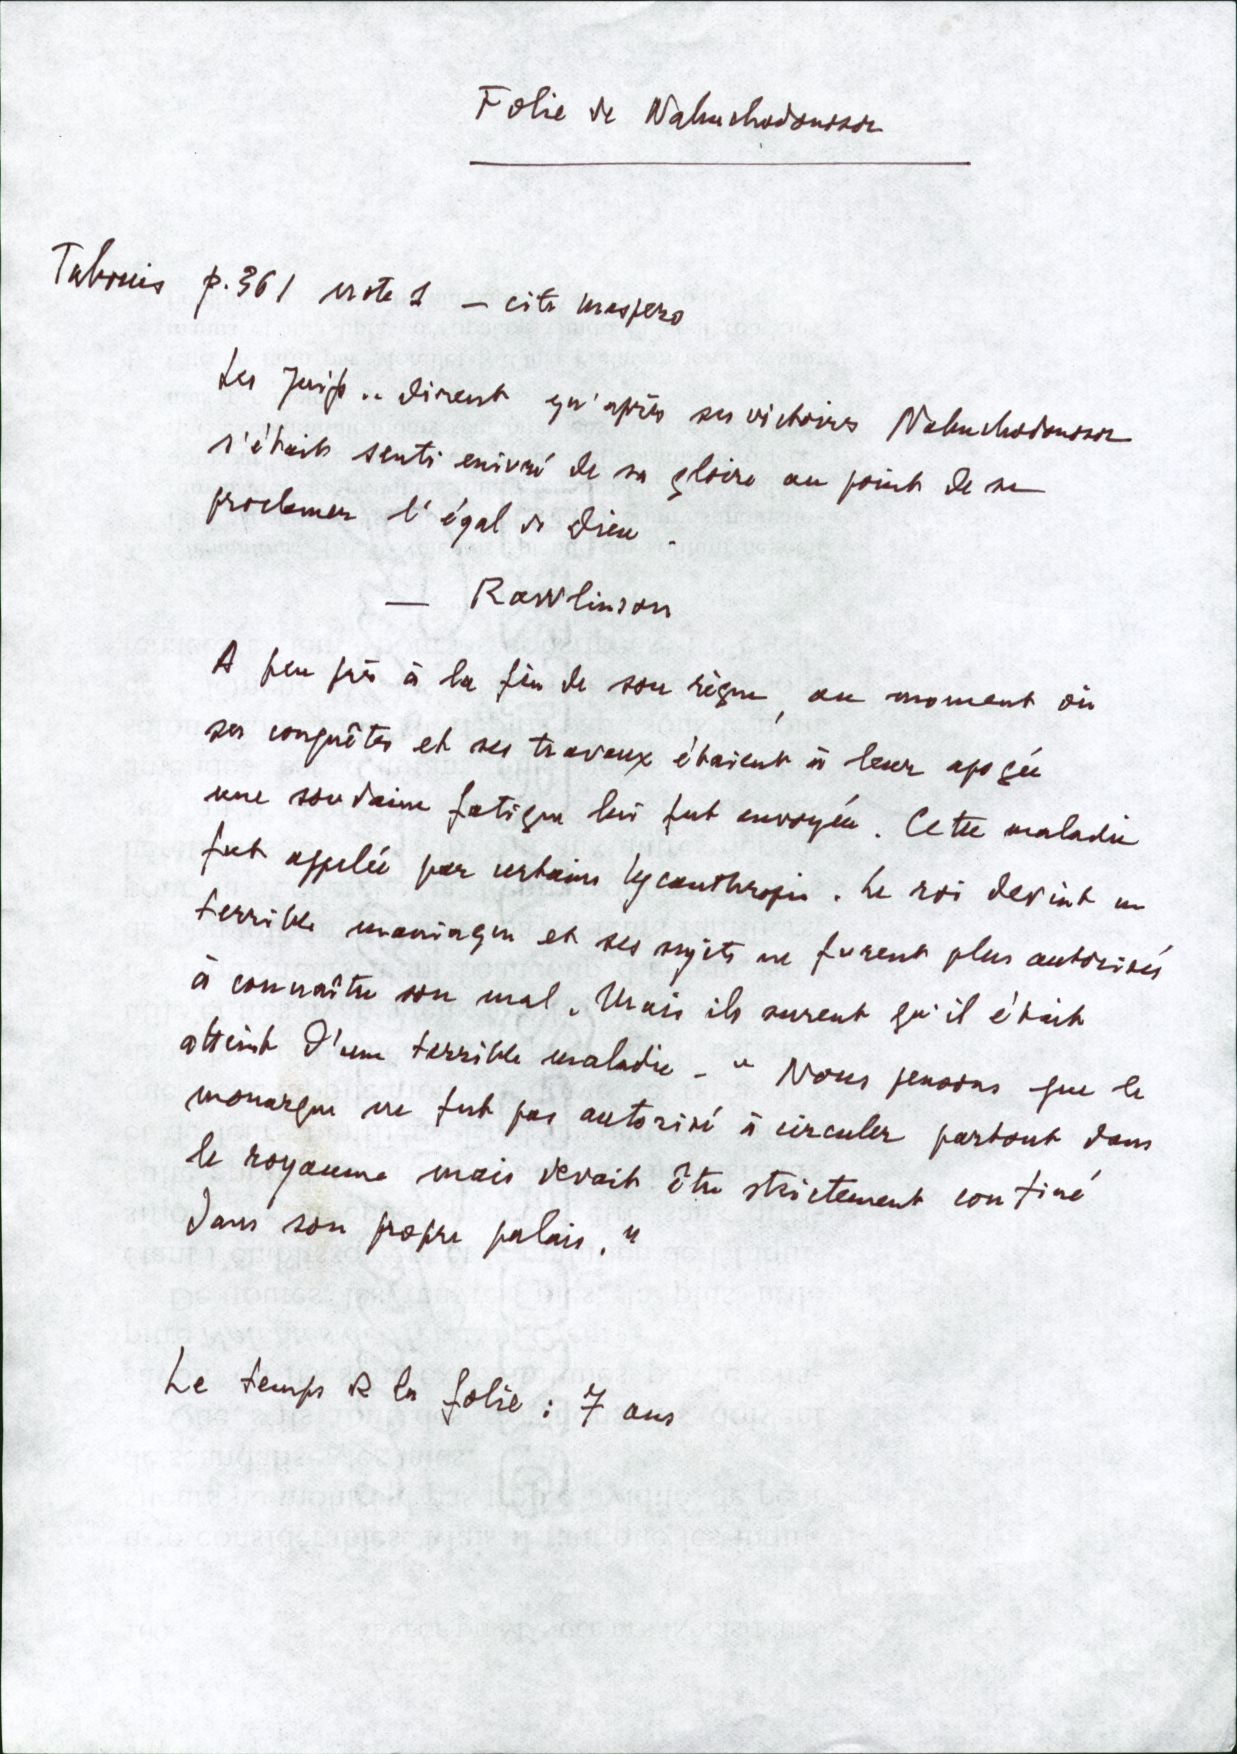 Folie de Nabuchodonosor
Tabouis p. 361 note 1 — cite Maspero
Les Juifs .. dirent qu'après ses victoires Nabuchodonosor
s'était senti enivré de sa gloire au point de se
proclamer l'égal de Dieu.
— Rawlinson
A peu près à la fin de son règne, au moment où
ses conquêtes et ses travaux étaient à leur apogée
une soudaine fatigue lui fut envoyée. Cette maladie
fut appelée par certains lycanthropie. Le roi devint un
terrible maniaque et ses sujets ne furent plus autorisés
à connaître son mal. Mais ils surent qu'il était
atteint d'une terrible maladie - " Nous pensons que le
monarque ne fut pas autorisé à circuler partout dans
le royaume mais devait être strictement confiné
dans son propre palais. "
Le temps de la folie : 7 ans